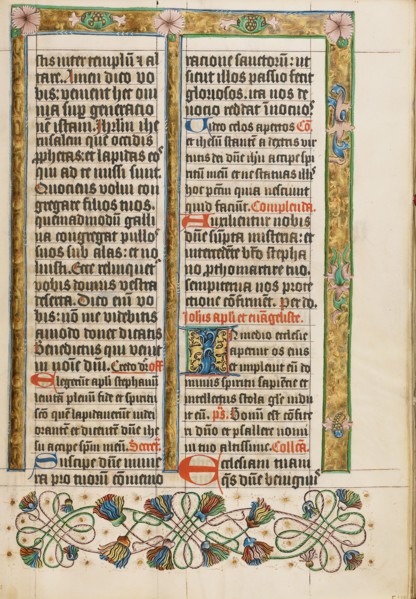 stis inter templū ⁊ al
tare. Amen dico vo
bis: venient hec om
nia sup generacio
nē istam. Jhrlm ihe
rusalem que occidis
pphetas: et lapidas eos
qui ad te missi sunt.
Quociens volui con
gregare filios tuos.
quemadmodū galli
na congregat pullos
suos sub alas: et no
luisti. Ecce relinquet
vobis domus vestra
deserta. Dico eim vo
bis: nō me videbitis
amodo donec dicatis
Benedictus qui venit
in noīe dnī. Credo off
Elegerūt apli stephanū
levitā plenū fide et spiritu
scō quē lapidaverūt iudei
orantē et dicentē dnē ihe
su accipe spm meū. Secreta
Suscipe dnē mune
ra pro tuorū cōmemo
racione sanctorū: ut
sicut illos passio fecit
gloriosos. ita nos de
vocio reddat īnocuos
Video celos apertos Cō
et ihesū stantē a dextris vir
tutis dei dnē ihū accipe spi
ritū meū et ne statuas illis
hoc pctm̄ quia nesciunt
quid faciūt. Complenda.
Auxilientur nobis
dnē sūpta misteria: et
intercedēte bto stepha
no prothomartire tuo.
sempiterna nos prote
ctione cōfirment. Per do.
Johis apli et euāgeliste.
In medio ecclesie
aperuit os eius
et implevit eū do
minus spiritu sapiēcie et
intellectus stola glē indu
it eū. ps. Bonum est cōfite
ri dnō et psallere nomi
ni tuo altissime. Collecta.
Ecclesiam tuam
qs dnē benignus